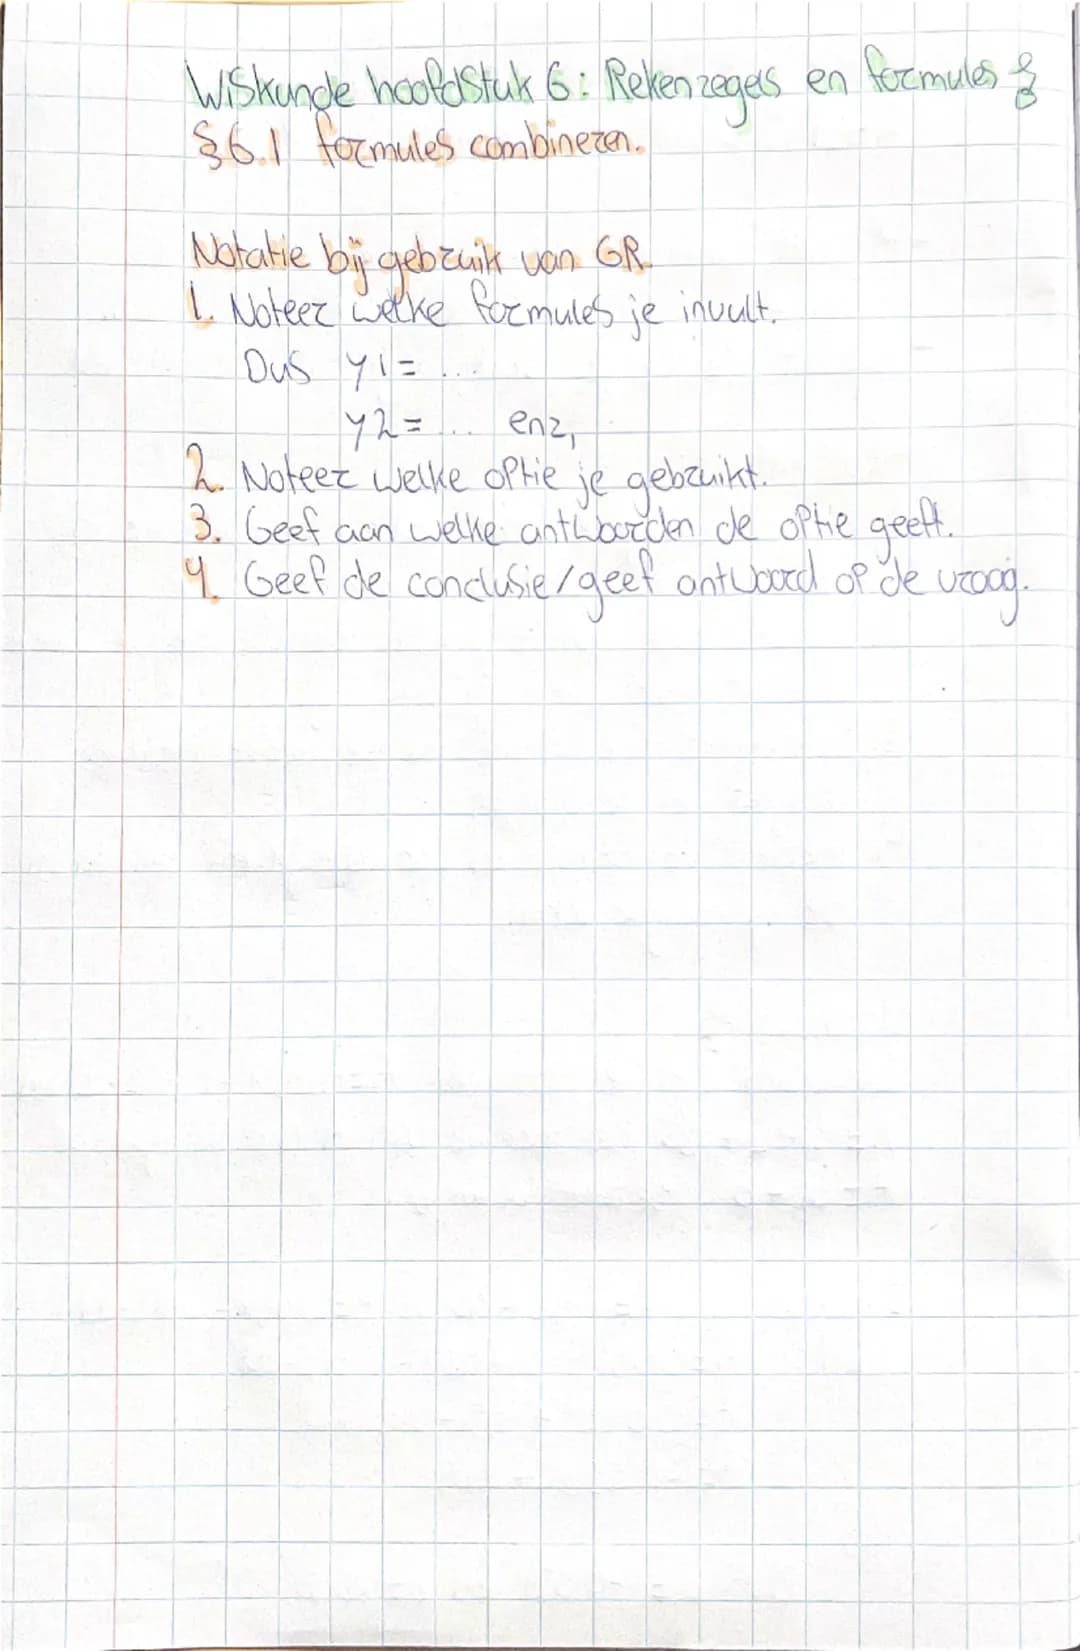 Wiskunde hoofdstuk 6: Rekenregels en formules
§6.1 formules combineren.
Notatie bij gebruik van GR.
1. Noteer welke formules je invult.
Dus y1= ...
y2= ... enz,
2. Noteer welke optie je gebruikt.
3. Geef aan welke antwoorden de optie geeft.
4. Geef de conclusie/geef antwoord op de vraag.